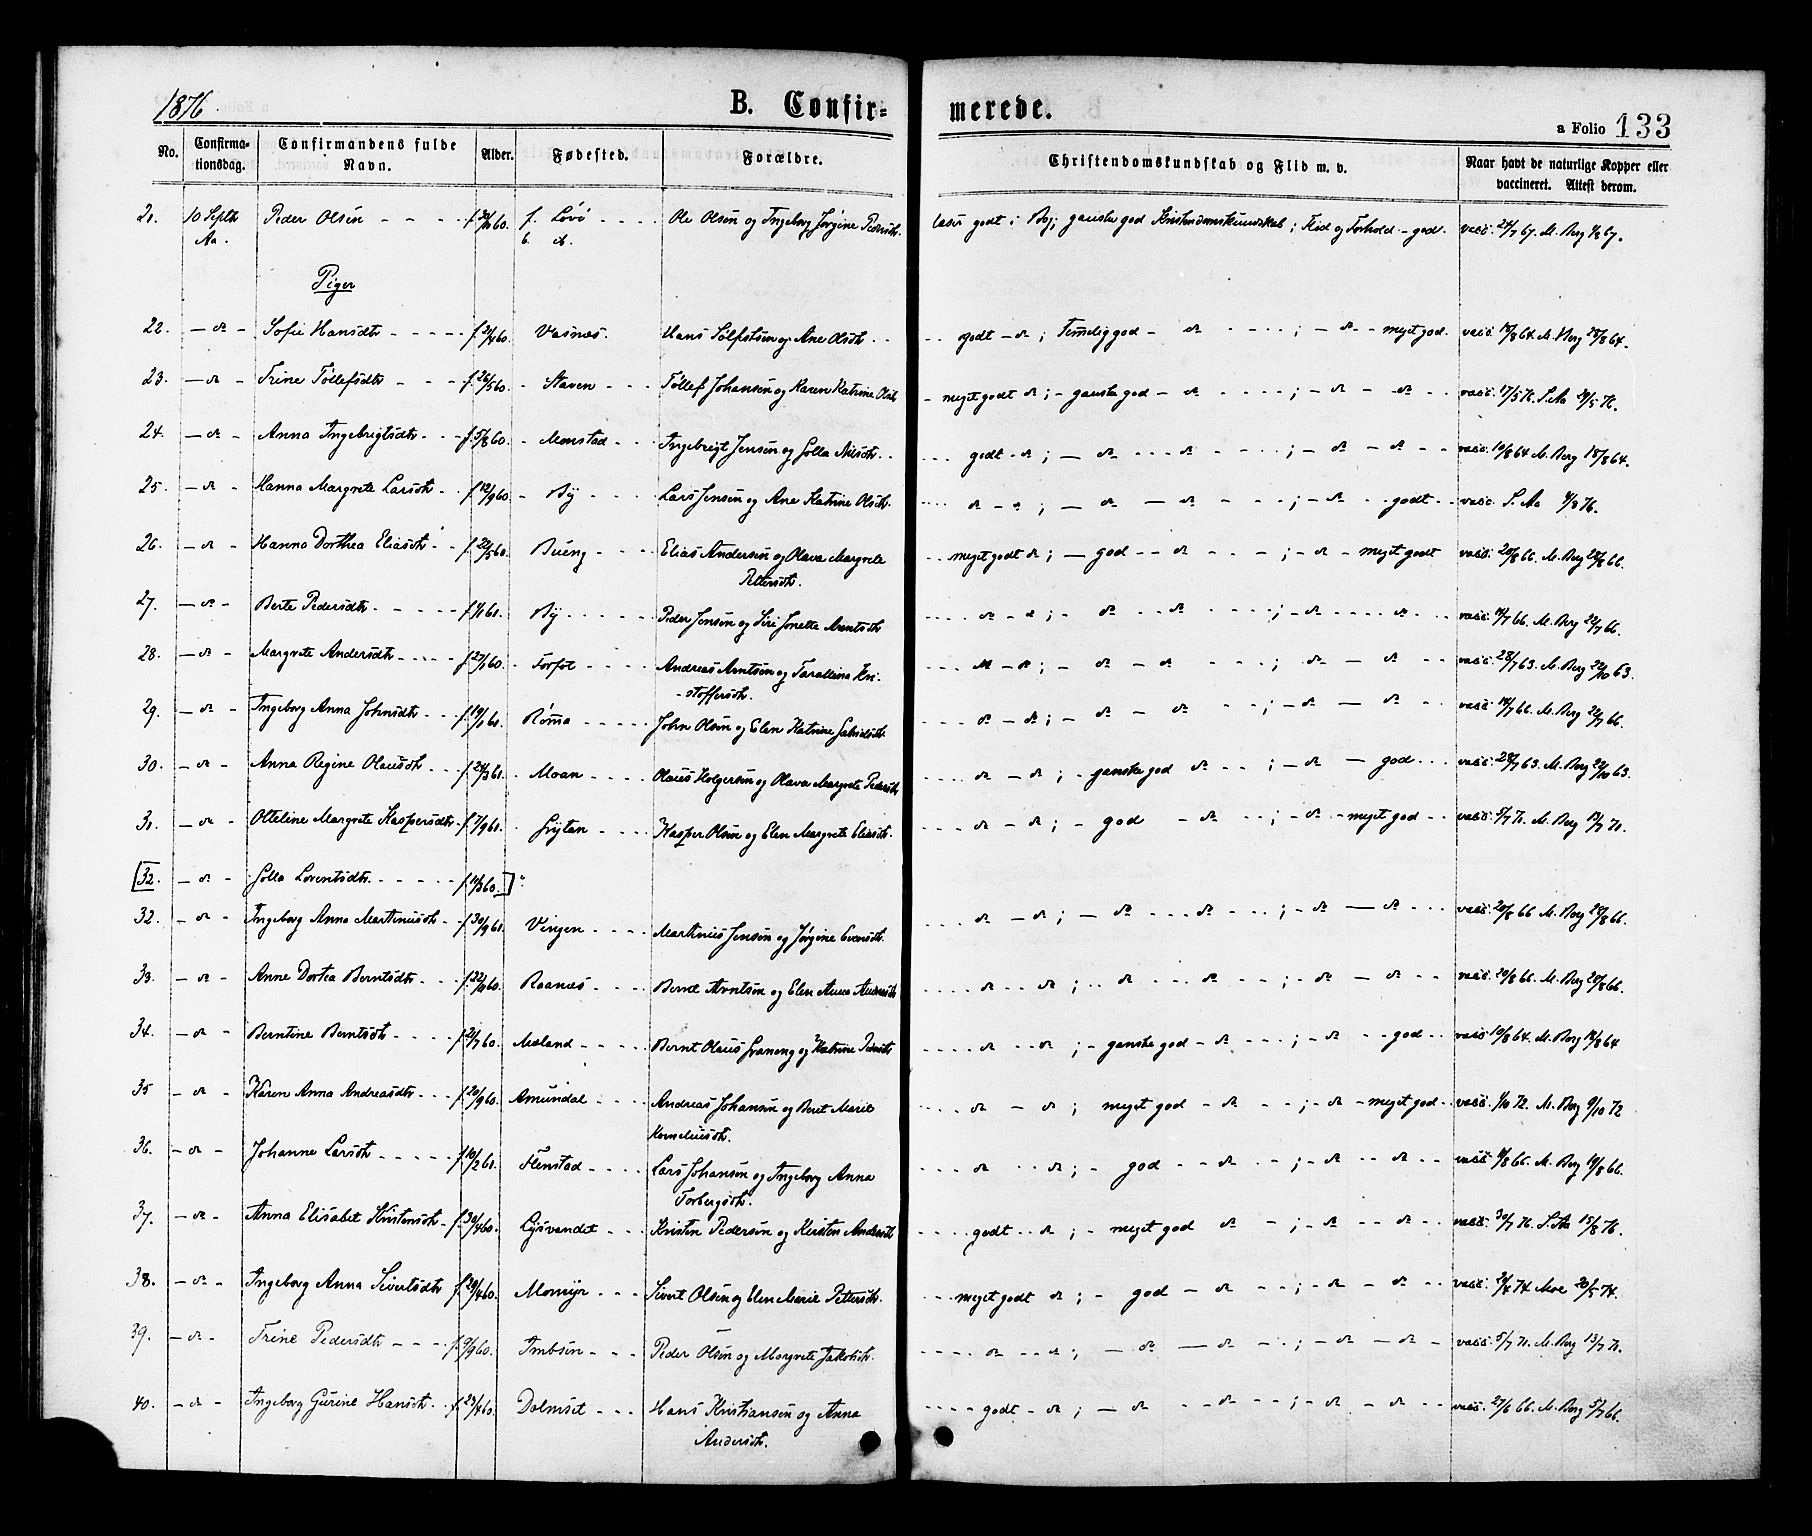 1876
B. Confir-
merede.
a Folio 133
No. Confirma-tionsdag. Confirmandens fulde Navn. Alder. Fødested. Forældre. Christendomskundskab og Flid m. v. Naar havt de naturlige Kopper eller vaccineret. Attest derom.
21. 10 Septbr Aa. Peder Olsen f. /60. f. Løvø Ole Olsen og Ingeborg Jørgine Pedersdtr. læser godt i Bog; ganske god Kristendomskundskab; Flid og Forhold - god. vacc. 24/7 67. M. Berg 1/8 67.
b. do.
Piger
22. - do - Sofie Hansdtr f. 21/4 60. Vasnæs. Hans og Ane Olsdtr. godt - do; Temmelig god - do; - do - meget god. vacc. 19/8 64. M. Berg 28/8 64.
23. - do - Trine Tøllefsdtr f. 26/5 60. Staven Tøllef Johansen og Karen Katrine Olsdtr meget godt do; - ganske god - do; - do - do vacc. 17/5 76. S. Aa 24/5 76.
24. - do - Anna Ingebrigtsdtr f. 5/8 60. Monstad Ingebrigt Jensen og Golla Nilsdtr. godt - do; - do - do; - do - do vacc. 10/8 64 M. Berg 18/8 64.
25. - do - Hanna Margrete Larsdtr f. 12/9 60. By Lars Jensen og Ane Katrine Olsdtr. do - do; - do - do; - do godt vacc. S. Aa 4/8 76.
26. - do - Hanna Dorthea Eliasdtr f. 22/5 60. Bueng Elias Andersen og Olava Margrete Pettersdtr. meget godt do; - god - do; - do - meget godt vacc. 20/8 66. M. Berg 28/8 66.
27. - do - Berte Pedersdtr f. 1/1 61. By Peder Jensen og Siri Jonette Arentsdtr do - do; - do - do; - do - do vacc. 14/7 66. M. Berg 22/7 66.
28. - do - Margrete Andersdtr f. 27/1 60. Forfot Andreas Arntsen og Taralline Kri-stoffersdtr. do - do; - do - do; do - do vacc. 28/7 63. M. Berg 22/10 63.
29. - do - Ingeborg Anna Johnsdtr f. 19/1 61. Rømma John Olsen og Elen Katrine do - do; - do - do; - do - do vacc. 14/7 66. M. Berg 22/7 66.
30. - do - Anna Regine Olausdtr f. 24/3 61. Moan Olaus Holgersen og Olava Margrete Pedersdtr do - do; - ganske god do; - do - god vacc. 28/7 63. M. Berg 22/10 63.
31. - do - Otteline Margrete Kaspersdtr f. 7/9 61. Grytan Kasper Olsen og Elen Margrete Eliasdtr. do - do; - god - do; - do - meget god vacc. 5/7 71. M. Berg 13/7 71.
[32. - do - Golla Lorentsdtr. f. 14/3 60.]
32. - do - Ingeborg Anna Martinusdtr f. 30/9 61. Vingen Martinus Jensen og Jørgine Evensdtr. do - do; - do do; - do - do vacc. 20/8 66 M. Berg 28/8 66.
33. - do - Anne Dortea Berntsdtr f. 22/11 60. Raanæs Bernt Arntsen og Elen Anna do do; do do; - do - do vacc. 20/8 66. M. Berg 28/8 66.
34. - do - Berntine Berntsdtr f. 21/7 60. Mæland Bernt Olaus Graneng og Katrine do do; - ganske god - do; - do god vacc. 10/8 64. M. Berg 14/8 64
35 - do - Karen Anna Andreasdtr f. 20/9 60. Amundal Andreas Johansen og Beret Marie Korneliusdtr. do - do; meget god - do; - do - meget god vacc. 1/10 72. M. Berg 9/10 72
36. - do - Johanne Larsdtr f. 10/2 61. Flenstad Lars Johansen og Ingeborg Anna Torbergsdtr. do do; - god - do; - do do vacc. 11/8 66. M. Berg 19/8 66.
37. - do - Anna Elisabet Kristensdtr f. 30/4 60. Gjevandet Kristen Pedersen og Kirsten Andersdtr godt do; - meget god do - ; - do do vacc. 30/7 76. S. Aa 15/8 76.
38. - do - Ingeborg Anna Sivertsdtr f. 29/4 60. Momyr Sivert Olsen og Elen Marie Pettersdtr. meget godt do; - god - do; - do - do vacc. 21/4 74 Moe 20/5 74.
39. - do - Trine Pedersdtr f. 9/9 60. Imbsen Peder Olsen og Margrete Jakobsdtr. do do; - do - do; - do - do vacc. 5/7 71. M. Berg 13/7 71.
40. - do - Ingeborg Gurine Hansdtr f. 23/4 60. Dolmset Hans Kristiansen og Anna Andersdtr. godt - do; - do do; - do - do vacc. 27/6 66. M. Berg 5/7 66.